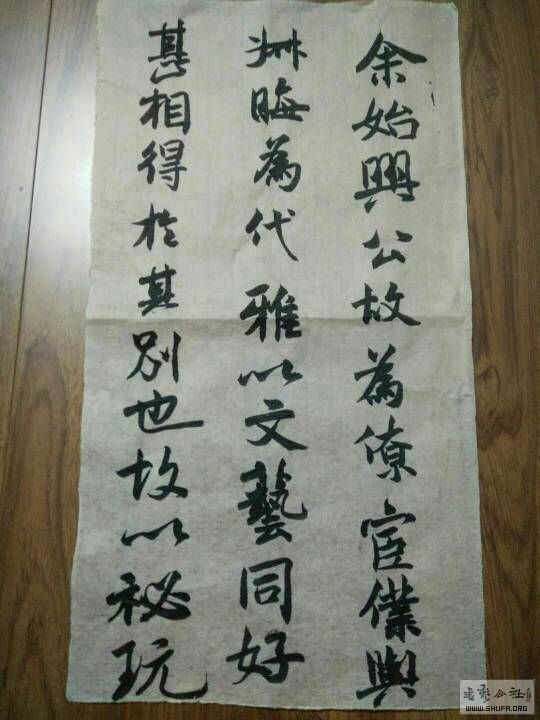 余始興公故為僚宦僕與
𠦑晦為代雅以文藝同好
甚相得扵其別也故以祕玩
書藝公社
WWW.SHUFA.ORG